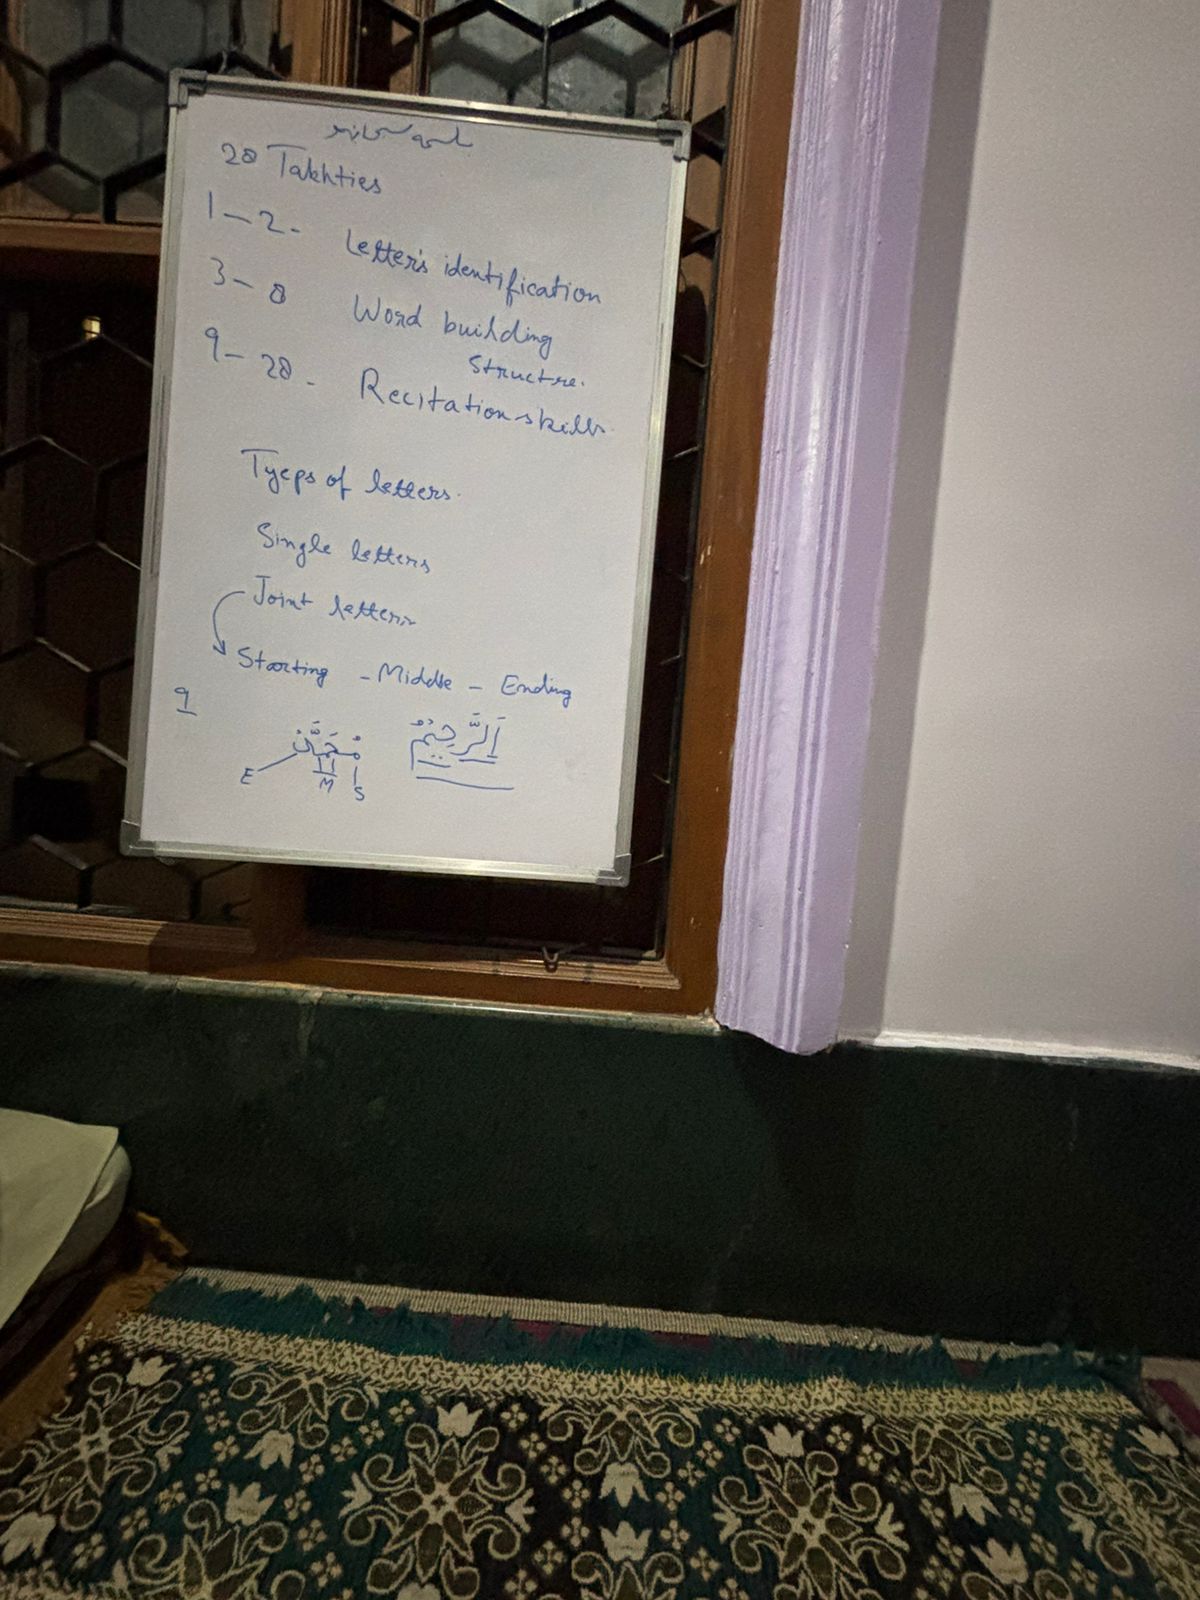 28 Takhties
1 — 2 -
Letter's identification
3 — 8
Word building
Structre.
9 — 28 -
Recitation skills.
Tyeps of letters.
Single letters
Joint letters
Starting - Middle - Ending
9
اَلرَّحِيْمُ
E M S